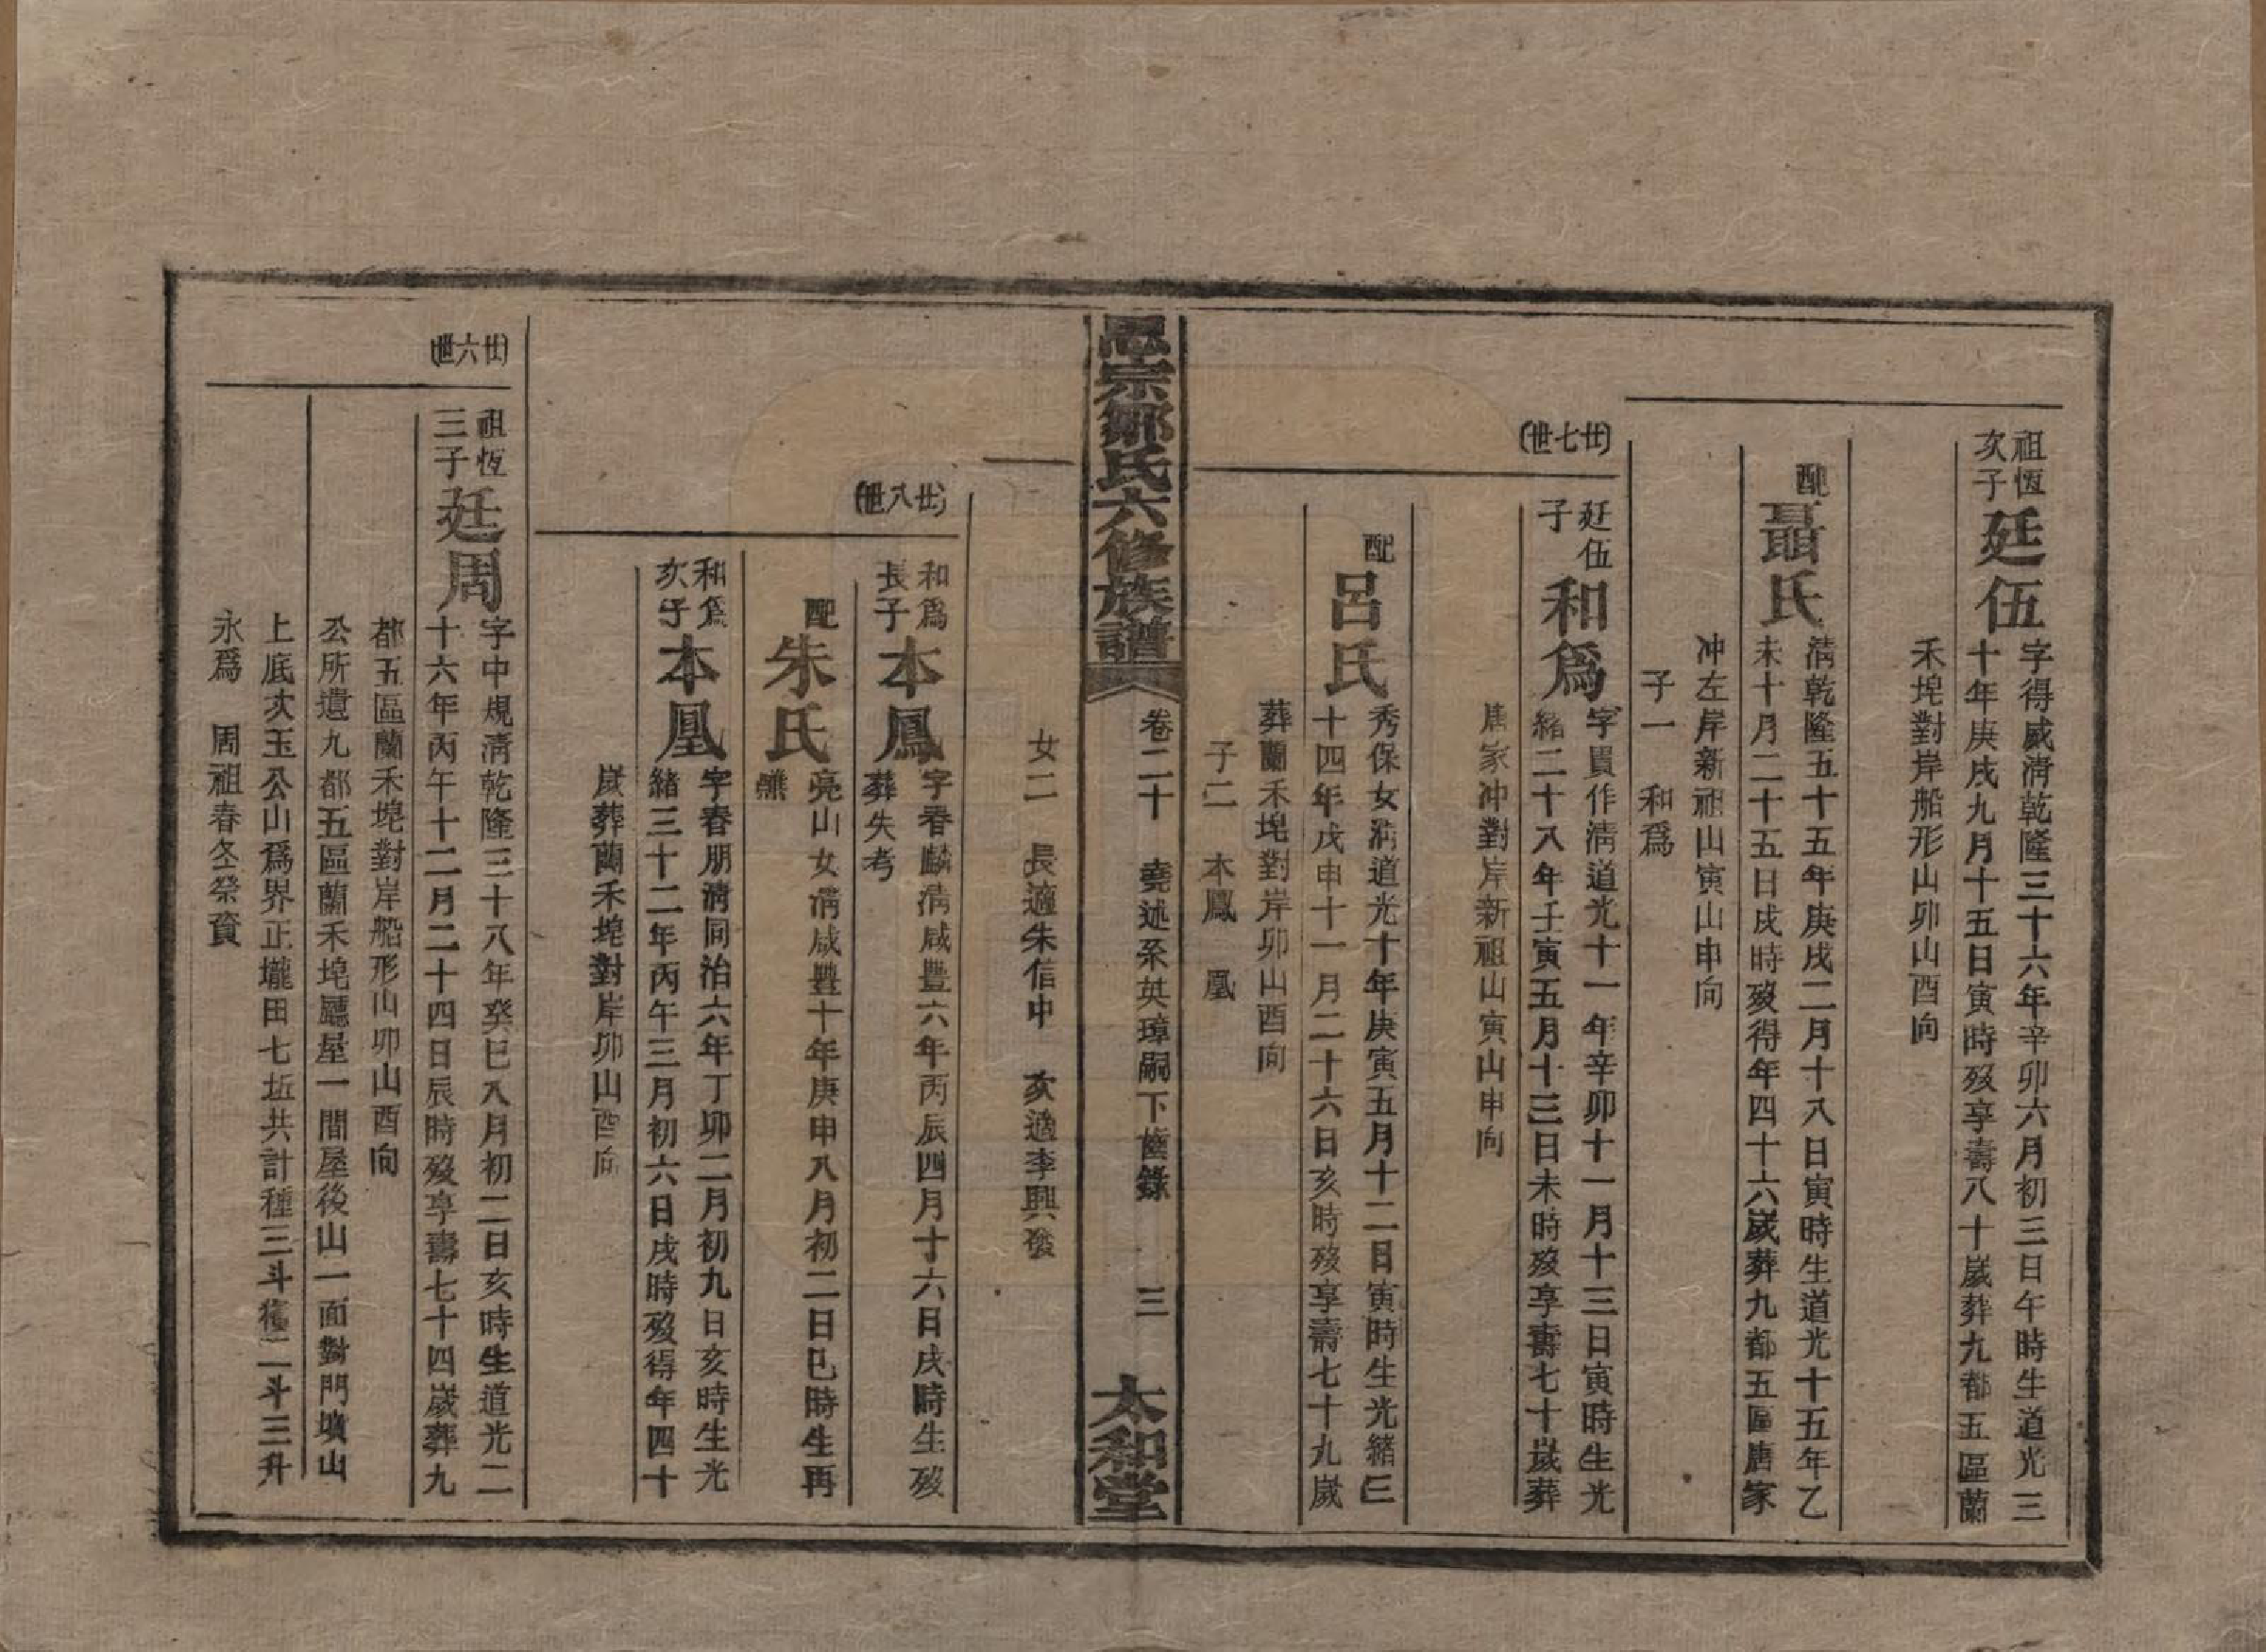 祖恆
次子
廷伍
字得威淸乾隆三十六年辛卯六月初三日午時生道光三
十年庚戌九月十五日寅時歿享壽八十歲葬九都五區蘭
禾埦對岸船形山卯山酉向
配
聶氏
淸乾隆五十五年庚戌二月十八日寅時生道光十五年乙
未十月二十五日戌時歿得年四十六歲葬九都五區唐家
冲左岸新祖山寅山申向
子一 和爲
(廿七世)
廷伍
子
和爲
字貫作淸道光十一年辛卯十一月十三日寅時生光
緒二十八年壬寅五月十三日未時歿享壽七十歲葬
唐家冲對岸新祖山寅山申向
配
呂氏
秀保女淸道光十年庚寅五月十二日寅時生光緒三
十四年戊申十一月二十六日亥時歿享壽七十九歲
葬蘭禾埦對岸卯山酉向
子二 本鳳 凰
思宗鄒氏六修族譜 卷二十 堯述系英璋嗣下齒錄 三 太和堂
女二 長適朱信中 次適李興發
(廿八世)
和爲
長子
本鳳
字春麟淸咸豐六年丙辰四月十六日戌時生歿
葬失考
配
朱氏
亮山女淸咸豐十年庚申八月初二日巳時生再
醮
和爲
次子
本凰
字春朋淸同治六年丁卯二月初九日亥時生光
緒三十二年丙午三月初六日戌時歿得年四十
歲葬蘭禾埦對岸卯山酉向
(廿六世)
祖恆
三子
廷周
字中規淸乾隆三十八年癸巳八月初二日亥時生道光二
十六年丙午十二月二十四日辰時歿享壽七十四歲葬九
都五區蘭禾埦對岸船形山卯山酉向
公所遺九都五區蘭禾埦廳屋一間屋後山一面對門墳山
上底次玉公山爲界正壠田七坵共計種三斗穫二斗三升
永爲 周祖春冬祭資